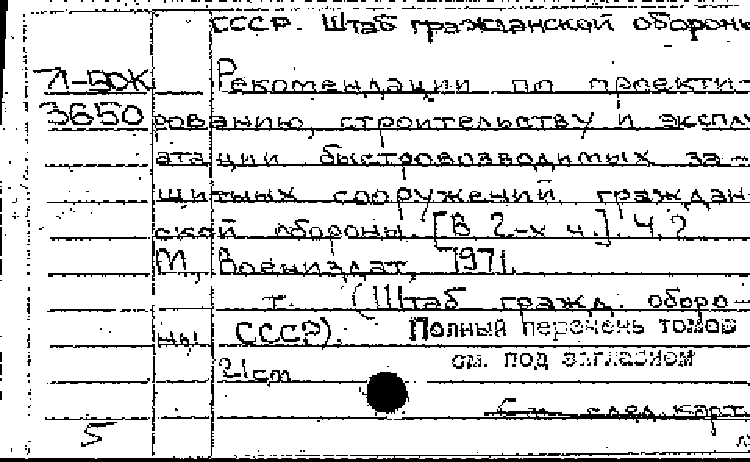 СССР. Штаб гражданской обороны
Л-БОК Рекомендации по проекти-
3650 рованию, строительству и эксплу
атации быстровозводимых за-
щитных сооружений граждан
ской обороны. [В 2-х ч.]. Ч.2
М., Воениздат, 1971.
т. (Штаб гражд. оборо-
ны СССР). Полный перечень томов
21cm см. под заглавием
См. след. карт
5